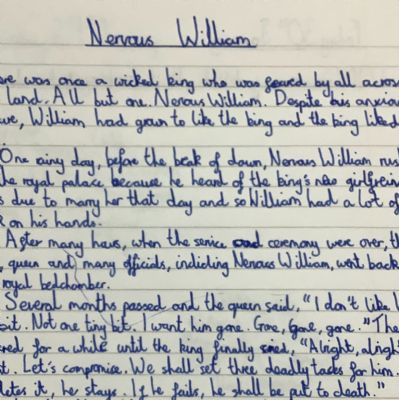 Nervous William
ere was once a wicked king who was feared by all across
land. All but one. Nervous William. Despite his anxiou
ure, William had grown to like the king and the king liked
One rainy day, before the beak of dawn, Nervous William rus
he royal palace because he heard of the king's new girlfrein
s due to marry her that day and so William had a lot of
k on his hands.
After many hours, when the service and ceremony were over, th
, queen and many officials, including Nervous William, went back
royal bedchamber.
Several months passed and the queen said, "I don't like
bit. Not one tiny bit. I want him gone. Gone, gone, gone." The
red for a while until the king finally said, "Alright, alrigh
t. Let's compromise. We shall set three deadly tasks for him.
letes it, he stays. If he fails, he shall be put to death."